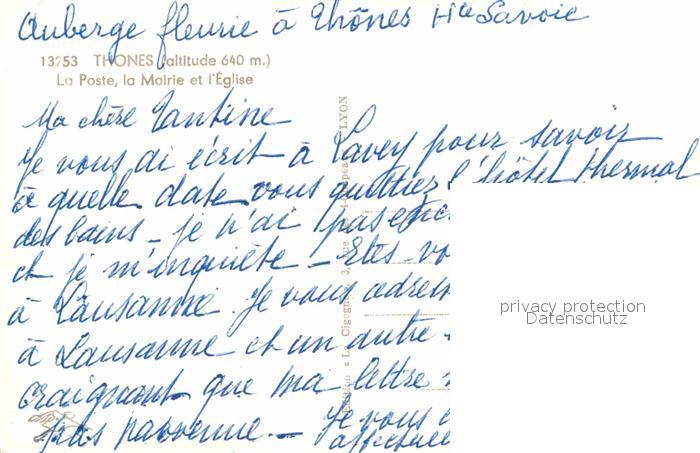 Auberge fleurie à Thônes Hte Savoie
13253 THONES (altitude 640 m.)
La Poste, la Mairie et l'Église
Ma chère Tantine
Je vous ai écrit à Lavey pour savoir
à quelle date vous quittiez l'hôtel thermal
des bains - je n'ai pas
et je m'inquiète - Etes-vo
à Lausanne. Je vous
à Lausanne et un autre -
craignant que ma lettre
pas parvenue. - Je vous
LYON
privacy protection
Datenschutz